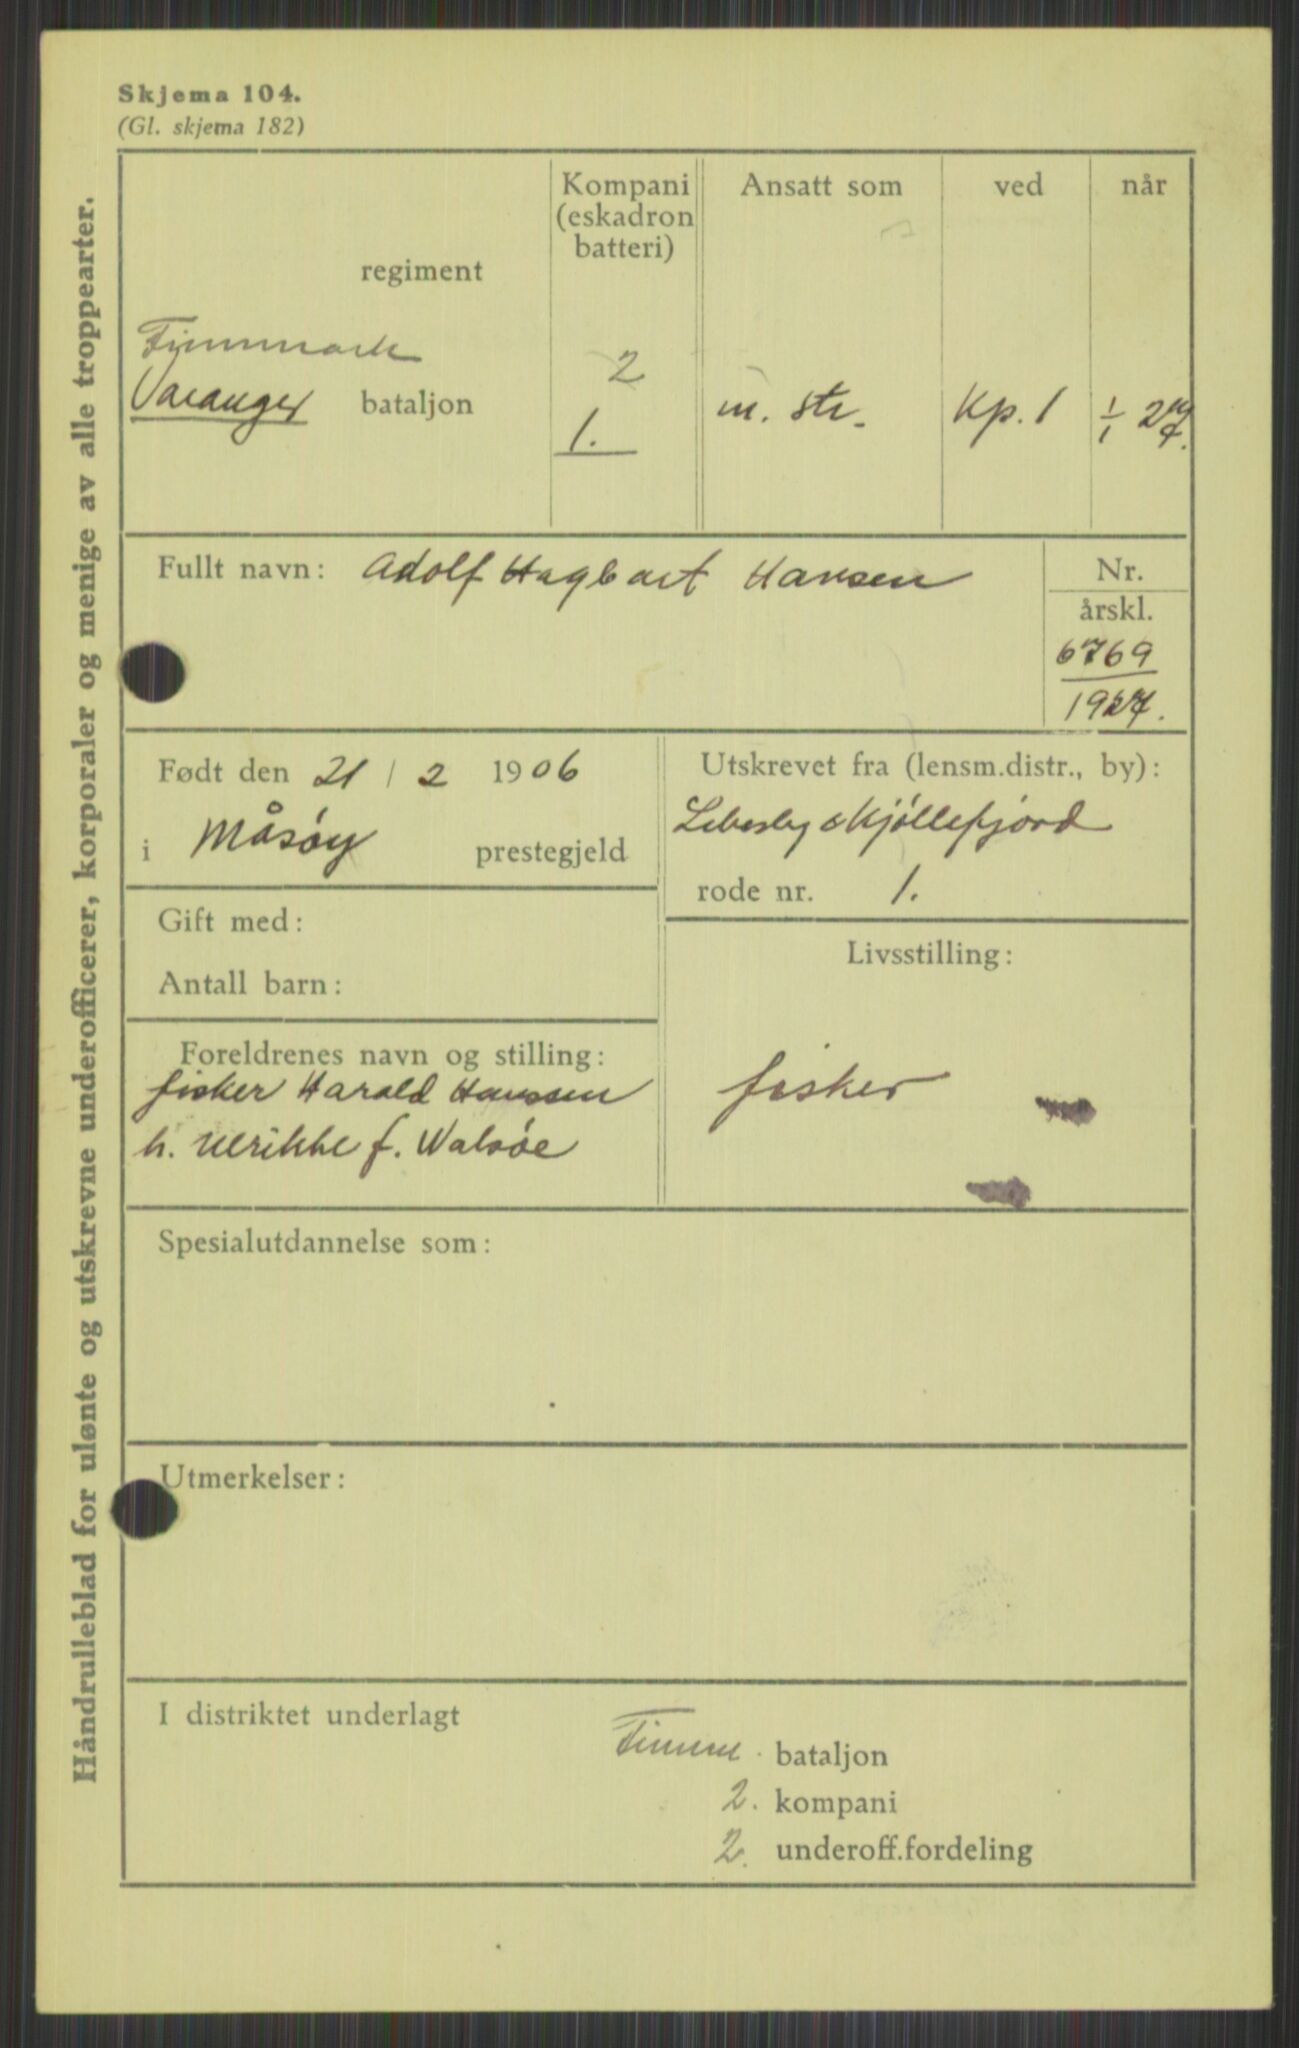 Skjema 104.
(Gl. skjema 182)
Håndrulleblad for ulønte og utskrevne underofficerer, korporaler og menige av alle troppearter.
regiment
Kompani
(eskadron
batteri)
Ansatt som
ved
når
Finnmark
2
Varanger bataljon
1.
m. str.
Kp. 1
1/1 27
Fullt navn: Adolf Hagbart Hansen
Nr.
årskl.
6769
1927.
Født den 21 / 2 1906
i Måsøy prestegjeld
Utskrevet fra (lensm.distr., by):
Lebesby & Kjøllefjord
rode nr. 1.
Gift med:
Antall barn:
Livsstilling:
fisker
Foreldrenes navn og stilling:
fisker Harald Hanssen
h. Ulrikke f. Walsøe
Spesialutdannelse som:
Utmerkelser:
I distriktet underlagt
Finnm. bataljon
2. kompani
2. underoff.fordeling